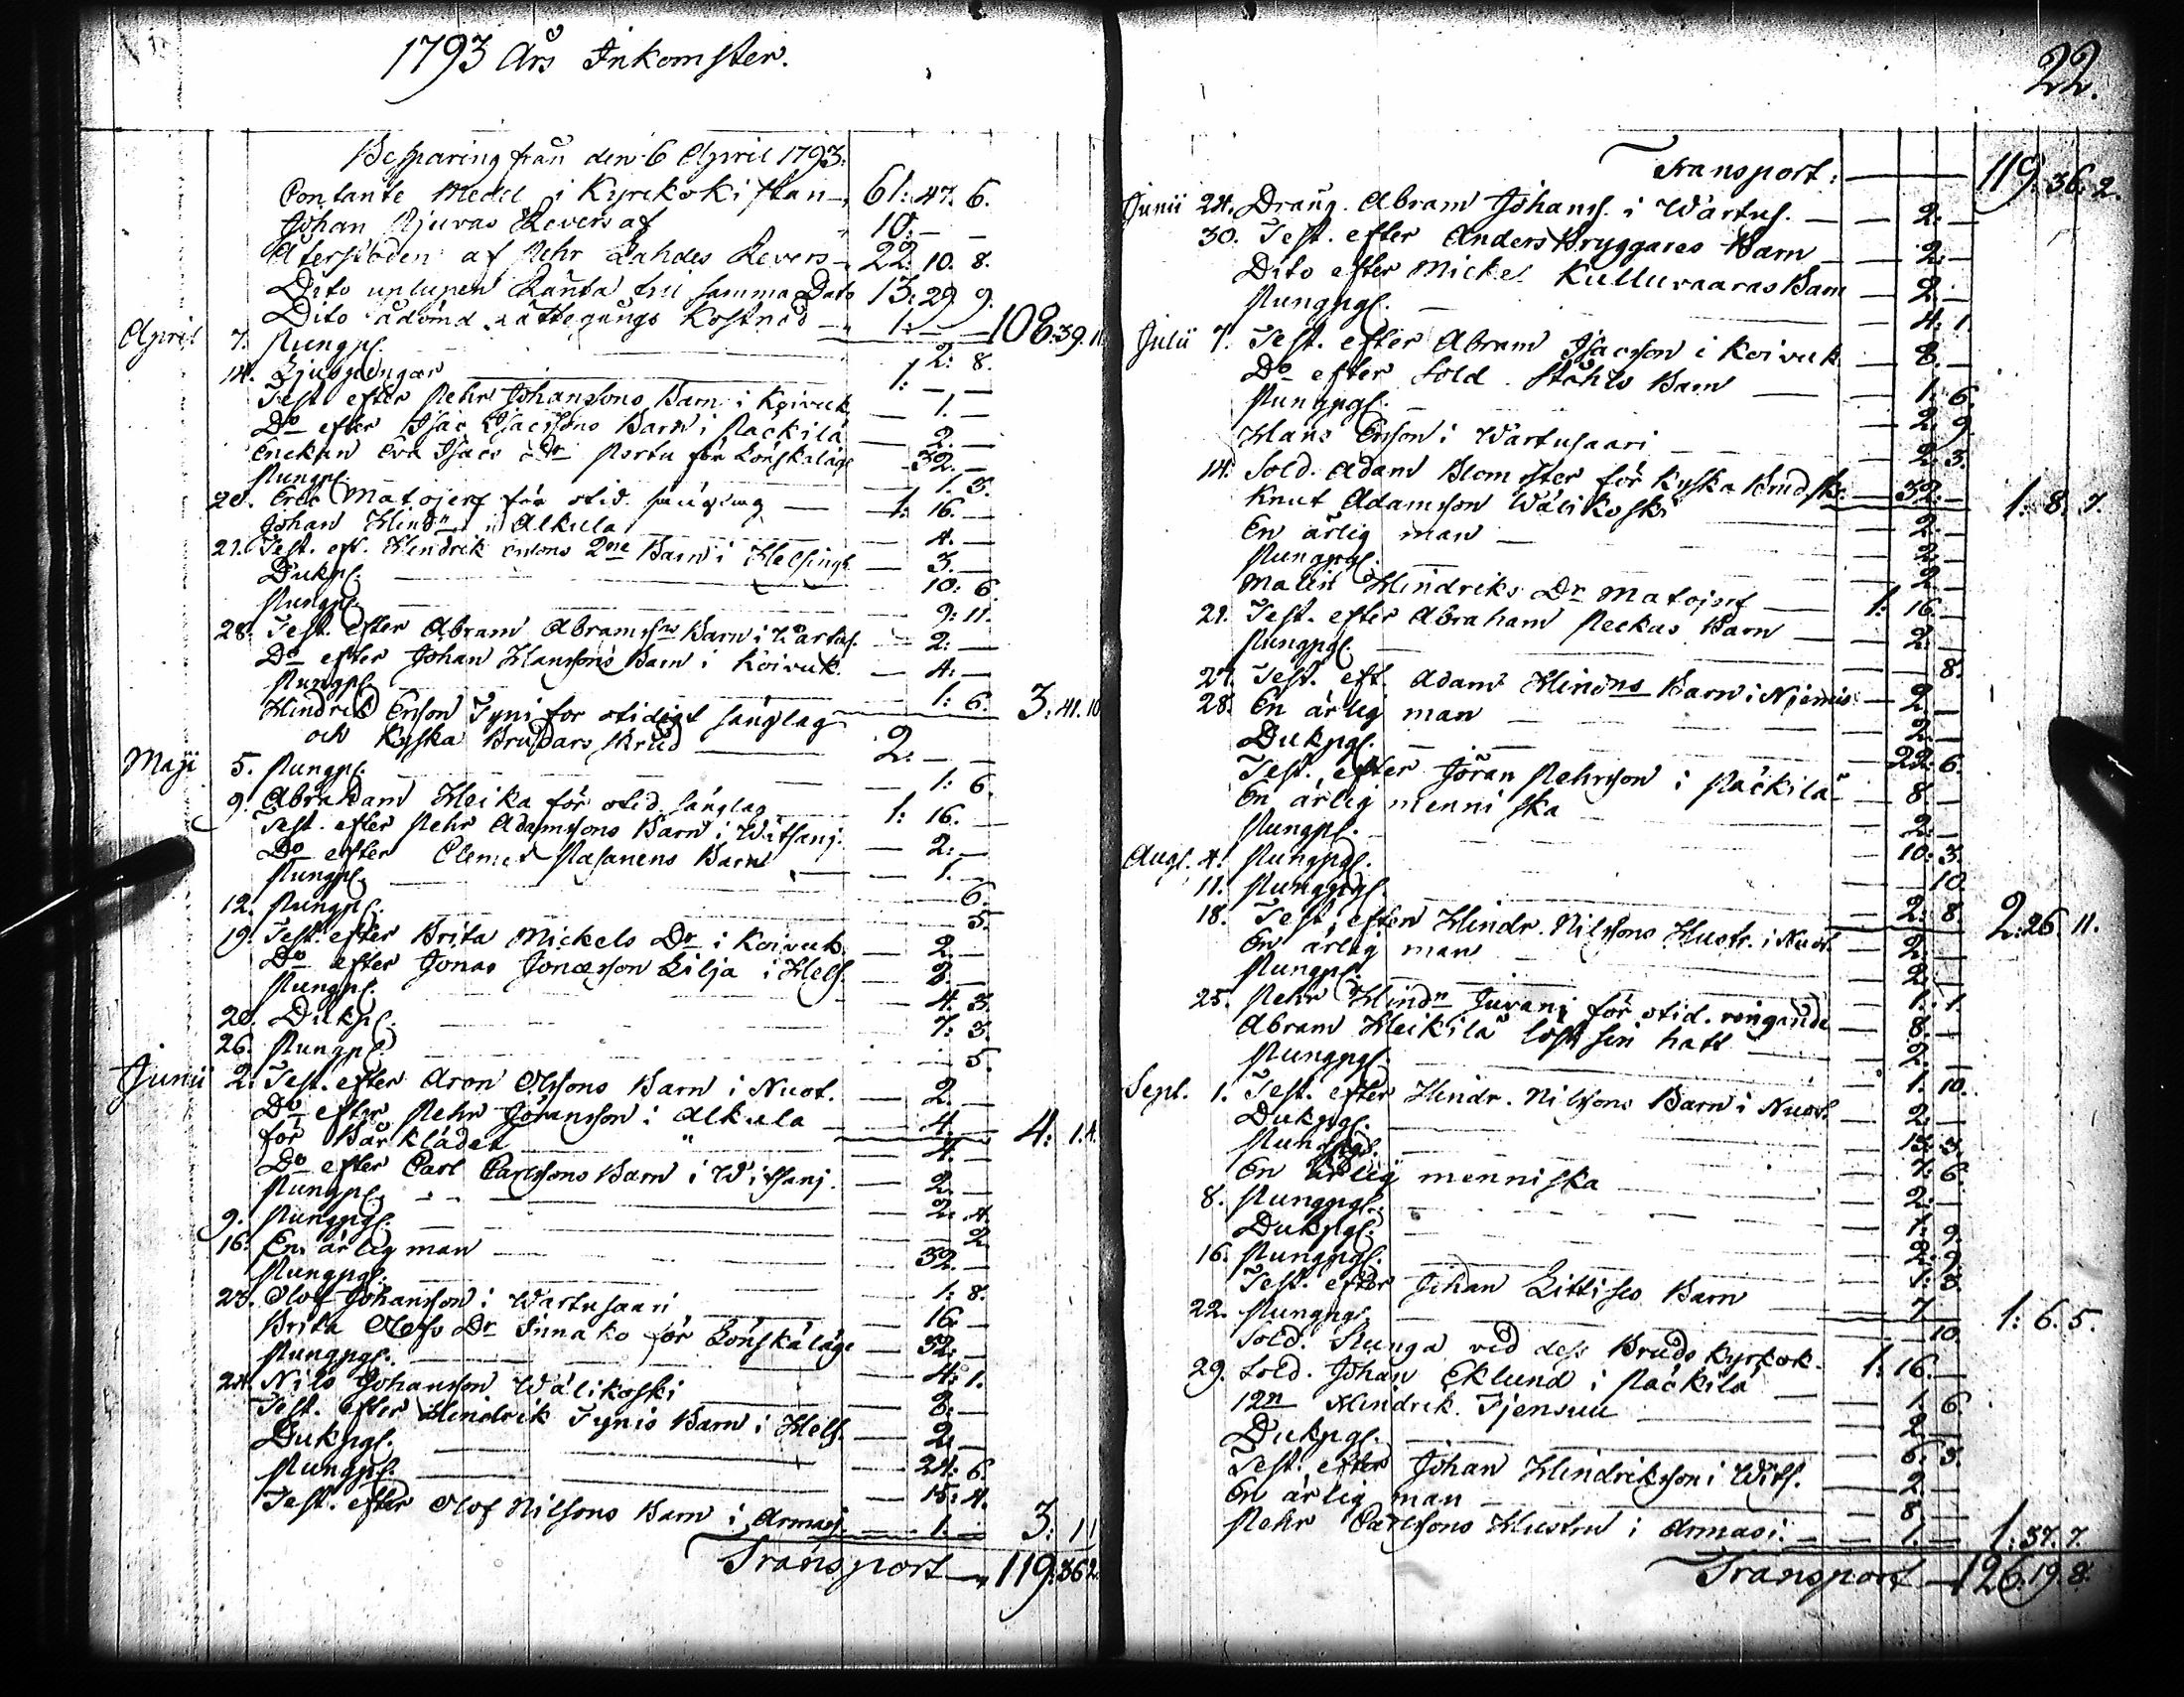 1793 Års Inkomster.
Besparing från den 6 April 1793.
Contante Medel i Kyrkokistan 61: 47. 6.
Johan Njuvas Revers af 10. — —
Återstoden af Pehr Lahdes Revers 22: 10. 8.
Dito uplupen Ränta till samma Dato 13. 29. 9.
Dito ådömd rättegångs Kostnad 1: — — 108:39.11
April 7. Pungpg. — 2: 8.
14. Ljuspengar 1: — —
Test. efter Pehr Johanssons Barn i Koivuk. — 1. —
Do efter Isac Isacssons Barn i Päckilä — 2. —
Enckan Eva Isacs Dr Portu för Lönskaläge 32. —
Pungpg. 1. 3.
20. Eric Matojerf för otid. sänglag 1: 16. —
Johan Hindrn i Alkula — 4. —
21. Test. eft. Hendrik Ersons 2ne Barn i Helsingb. — 3. —
Dukpg. — 10: 6.
Pungpg. — 9: 11.
28. Test. efter Abram Abramsns Barn i Wartus. — 2: —
Do efter Johan Hanssons Barn i Koivuk. — 4. —
Pungpg. 1: 6. 3: 41. 10
Hindrik Erson Tyni för otidigt sänglag
och Kyska Brudars skrud 2. — —
Maji 5. Pungpg. — 1: 6.
9. Abraham Heika för otid. sänglag 1: 16. —
Test. efter Pehr Adamssons Barn i Witsanj. — 2: —
Do efter Clemet Pasanens Barn — 1. —
Pungpg. — 6.
12. Pungpg. 5.
19. Test. efter Brita Mickels Dr i Koivuk. — 2. —
Do efter Jonas Jonasson Lilja i Hels. — 8. —
Pungpg. — 4. 3.
20. Dukpg. — 7: 3.
26. Pungpg. — 5.
Junii 2. Test. efter Aron Olssons Barn i Nuot. — 2. —
Do efter Pehr Johansson i Alkula — 4. — 4: 1.4.
för Bårklädet " 4. —
Do efter Carl Carlssons Barn i Witsanj. — 2. —
Pungpg. — 2. 4.
9. Pungpg. — 2.
16. En ärlig man — 32. —
Pungpg. — 1: 8.
23. Olof Johansson i Wartusaari — 16. —
Brita Olofs Dr Innako för Lönskaläge — 32. —
Pungpg. — 4: 1.
24. Nils Johansson Wälikoski — 8: —
Test. efter Hindrik Tynis Barn i Hels. — 2. —
Dukpg. — 24: 6.
Pungpg. — 15: 4.
Test. efter Olof Nilssons Barn i Armasj. — 1. — 3: 1 1
Transport — 119:36 2.
22.
Transport: — 119: 36. 2.
Junii 24. Dräng. Abram Johanss. i Wartus. — 2. —
30. Test. efter Anders Bryggares Barn — 2: —
Dito efter Mickel Kulluvaaras Barn — 2. —
Pungpg. — 4: 1.
Julii 7. Test. efter Abram Isacsson i Koivuk — 8. —
Do efter Sold. Ståhls Barn — 1. 6.
Pungpg. — 2. 9.
Hans Erson i Wartusaari — 2. 3.
14. Sold. Adam Blomster för Kyska Brud sk. — 32. — 1: 8. 7.
Knut Adamsson Wälikoski — 2. —
En ärlig man — 2. —
Pungpg. — 2 —
Malin Hindriks Dr Matojerf 1: 16 —
21. Test. efter Abraham Peckas Barn — 2. —
Pungpg. — 8.
27. Test. eft. Adam Hindns Barn i Niemis. — 2. —
28. En ärlig man — 2. —
Dukpg. 22. 6.
Test. efter Jöran Pehrsson i Päckilä — 8. —
En ärlig menniska — 2. —
Pungpg. — 10: 3.
Augs. 4. Pungpg. — 10.
11. Pungpg. — 2: 8. 2:26. 11.
18. Test. efter Hindr. Nilssons Hustr. i Nuot. — 2. —
En ärlig man — 2. —
Pungpg. — 1. 1.
25. Pehr Hindn Juvanj för otid. ringande — 8. —
Abram Heickilä löst sin hatt — 2. —
Pungpg. — 1. 10.
Sept. 1. Test. efter Hindr. Nilssons Barn i Nuot. — 2. —
Dukpg. — 13. 3.
Pungpg. — 7: 6.
En ärlig menniska — 2: —
8. Pungpg. — 1. 9.
Dukpg. — 2. 9.
16. Pungpg. — 1: 8.
Test. efter Johan Littises Barn — 7 — 1: 6. 5.
22. Pungpg. — 10.
Sold. Runga vid dess Bruds kyrkok. 1: 16. —
29. Sold. Johan Eklund i Päckilä — 1. 6.
12n Hindrik Tjensuu — 2 —
Dukpg. — 6: 3.
Test. efter Johan Hindriksson i Wits. — 2. —
En ärlig man — 8. —
Pehr Carlssons Hustru i Armasj. — 1. — 1: 37. 7.
Transport — 126. 19. 8.